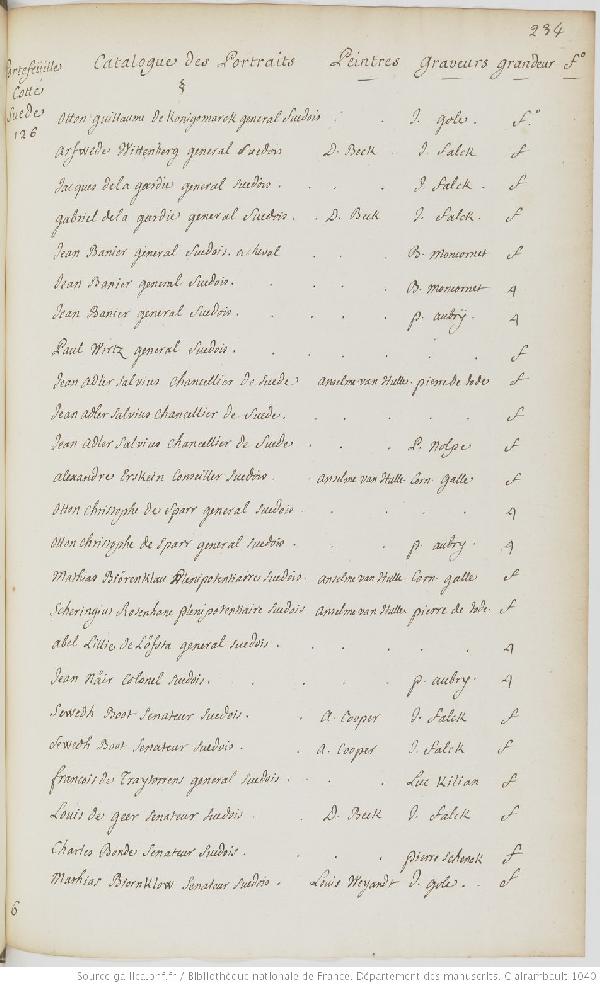 234
Portefeüille Cotté Suede 126
Catalogue des Portraits Peintres graveurs grandeur f°
§
Otton guillaume de Konigsmarck general Suedois . . J. gole . f.°
Arfwede Wittenberg general Suedois D. Beck . J. Falck f
Jacques de la gardie general Suedois . . . . J. Falck . f
gabriel de la gardie general Suedois . . D. Beck J. Falck . f
Jean Banier general Suedois . a cheval . . B. moncornet f
Jean Banier general Suedois . . . . B. moncornet 4
Jean Banier general Suedois . . . . p. aubrÿ . 4
Paul Wirtz general Suedois . . . . . . f
Jean Adler Salvius Chancellier de Suede . Anselme van Hulle . pierre de Jode f
Jean Adler Salvius Chancellier de Suede . . . . . f
Jean Adler Salvius Chancellier de Suede . . . P. Nolpe f
Alexandre Erskein Conseiller Suedois . . Anselme van Hulle Corn. galle f
Otton Christophe de Sparr general Suedois . . . . . 4
Otton Christophe de Sparr general Suedois . . . p. aubry . 4
Mathias Biörenklau Plenipotentiaire Suedois . Anselme van Hulle Corn. galle f
Scheringius Rosenhane plenipotentiaire Suedois Anselme van Hulle pierre de Jode . f
Abel Lillie de Löfsta general Suedois . . . . . 4
Jean Näir Colonel Suedois . . . . p. aubry . 4
Sewedh Boot Senateur Suedois . . A. Cooper J. Falck f
Sewedh Boot Senateur Suedois . . A. Cooper J. Falck f
françois de Traytorrens general Suedois . . . . Luc Kilian f
Louis de geer Senateur Suedois . . D. Beck J. Falck f
Charles Bonde Senateur Suedois . . . . pierre Schenck f
Mathias Biornklow Senateur Suedois . Louis Weyandt J. gole . . f
6
Source gallica.bnf.fr / Bibliothèque nationale de France. Département des manuscrits. Clairambault 1040